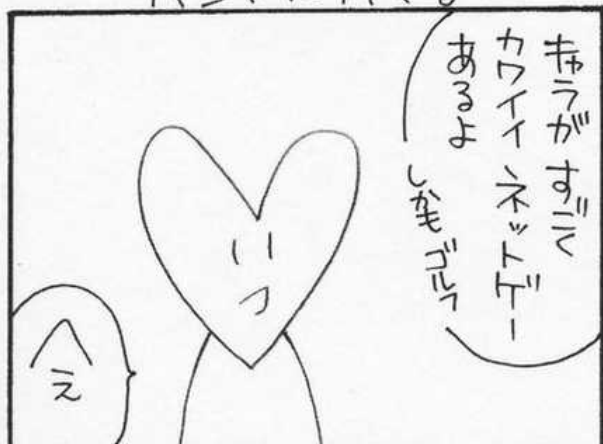 キャラがすごく
カワイイネットゲー
あるよ
しかもゴルフ
へぇ